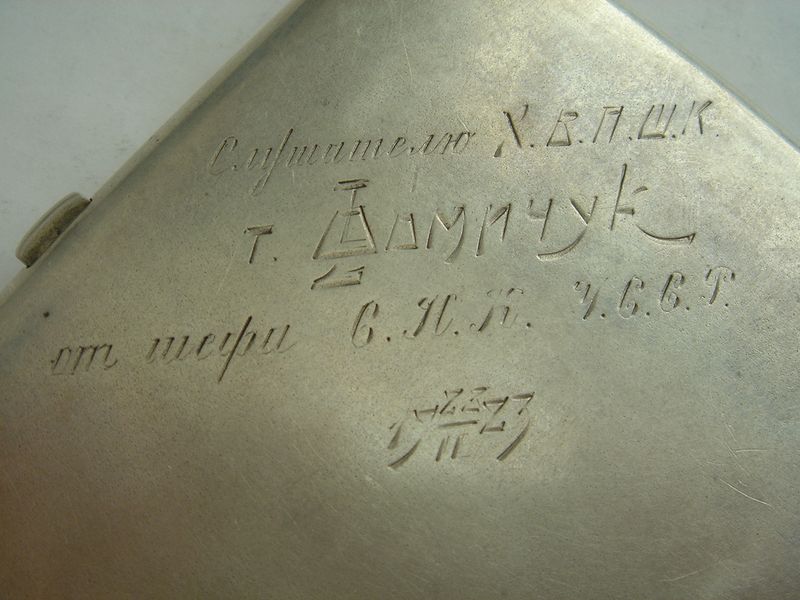 Слушателю Х.В.П.Ш.К.
т. Домичук
от шефа С.Н.К. У.С.С.Р.
19 23/II 23